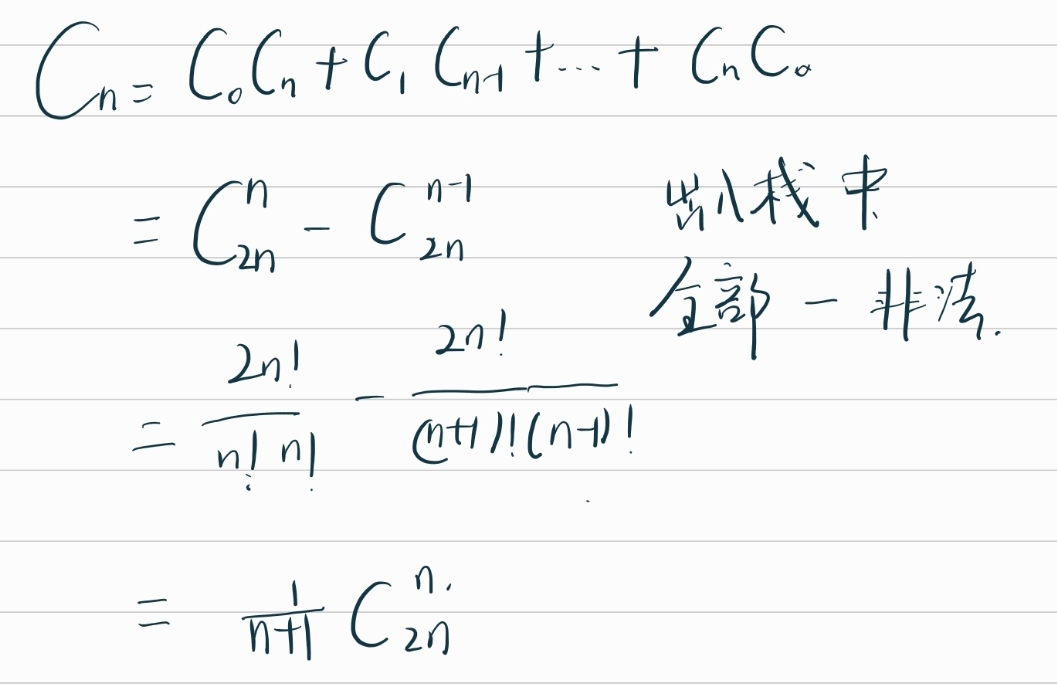 Cₙ = C₀Cₙ + C₁Cₙ₋₁ + ... + CₙC₀
= C₂ₙⁿ - C₂ₙⁿ⁻¹ 出入栈中
全部 - 非法.
= 2n!/(n! n!) - 2n!/((n+1)!(n-1)!)
= 1/(n+1) C₂ₙⁿ.